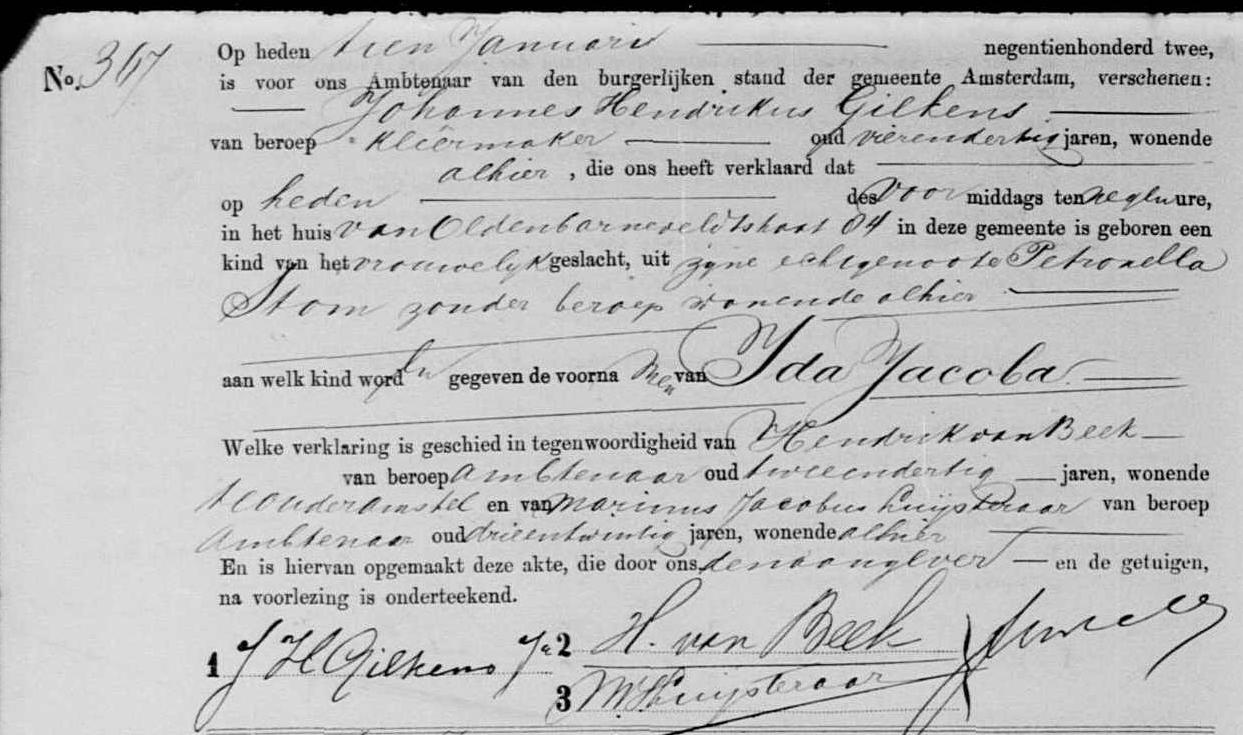 No. 367
Op heden tien Januari negentienhonderd twee,
is voor ons Ambtenaar van den burgerlijken stand der gemeente Amsterdam, verschenen:
Johannes Hendrikus Gilkens
van beroep kleermaker oud vierendertig jaren, wonende
alhier, die ons heeft verklaard dat
op heden des voormiddags ten negen ure,
in het huis van Oldenbarneveldtstraat 84 in deze gemeente is geboren een
kind van het vrouwelijk geslacht, uit zijne echtgenoote Petronella
Stom zonder beroep wonende alhier
aan welk kind worden gegeven de voornamen van Ida Jacoba
Welke verklaring is geschied in tegenwoordigheid van Hendrik van Beek
van beroep ambtenaar oud tweeendertig jaren, wonende
te Ouderamstel en van Marinus Jacobus Luijsteraar van beroep
Ambtenaar oud drieentwintig jaren, wonende alhier
En is hiervan opgemaakt deze akte, die door ons, den aangever en de getuigen,
na voorlezing is onderteekend.
1 J H Gilkens 2 H. van Beek
3 M J Luijsteraar